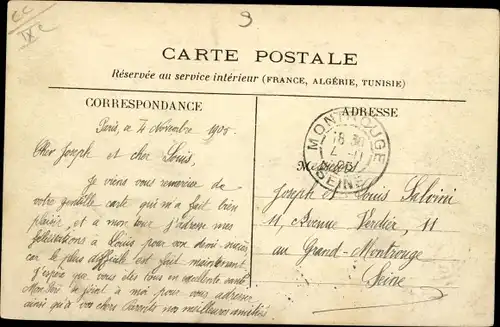 CC
IXe
9
CARTE POSTALE
Réservée au service intérieur (FRANCE, ALGÉRIE, TUNISIE)
CORRESPONDANCE
Paris, ce 4 Novembre 1905
Cher Joseph et cher Louis,
Je viens vous remercier de
votre gentille carte qui m'a fait bien
plaisir, et à mon tour j'adresse mes
félicitations à Louis pour son
car le plus difficile est fait maintenant
J'espère que vous êtes tous en excellente santé
se joint à moi pour vous adresser
ainsi qu'à vos chers Parents nos meilleures amitiés
ADRESSE
MONTROUGE
SEINE
Messieurs
Joseph et Louis Salvini
11, Avenue Verdier, 11
au Grand-Montrouge
Seine